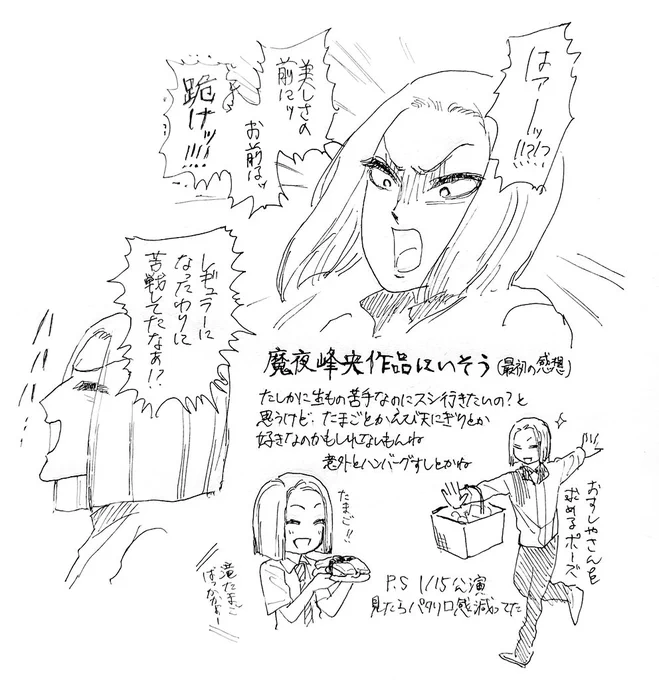 はァーーッ!!?!?
美しさの
前にッ
お前はッ
跪けッ!!!!
レギュラーに
なったわりに
苦戦してたなぁ!?
魔夜峰央作品にいそう(最初の感想)
たしかに生もの苦手なのにスシ行きたいの?と
思うけど、たまごとかえび天にぎりとか
好きなのかもしれないもんね
意外とハンバーグすしとかね
たまご!!
おすしやさんを
求めるポーズ
滝たまご
ばっかだなー
P.S 1/15公演
見たらパタリロ感減ってた